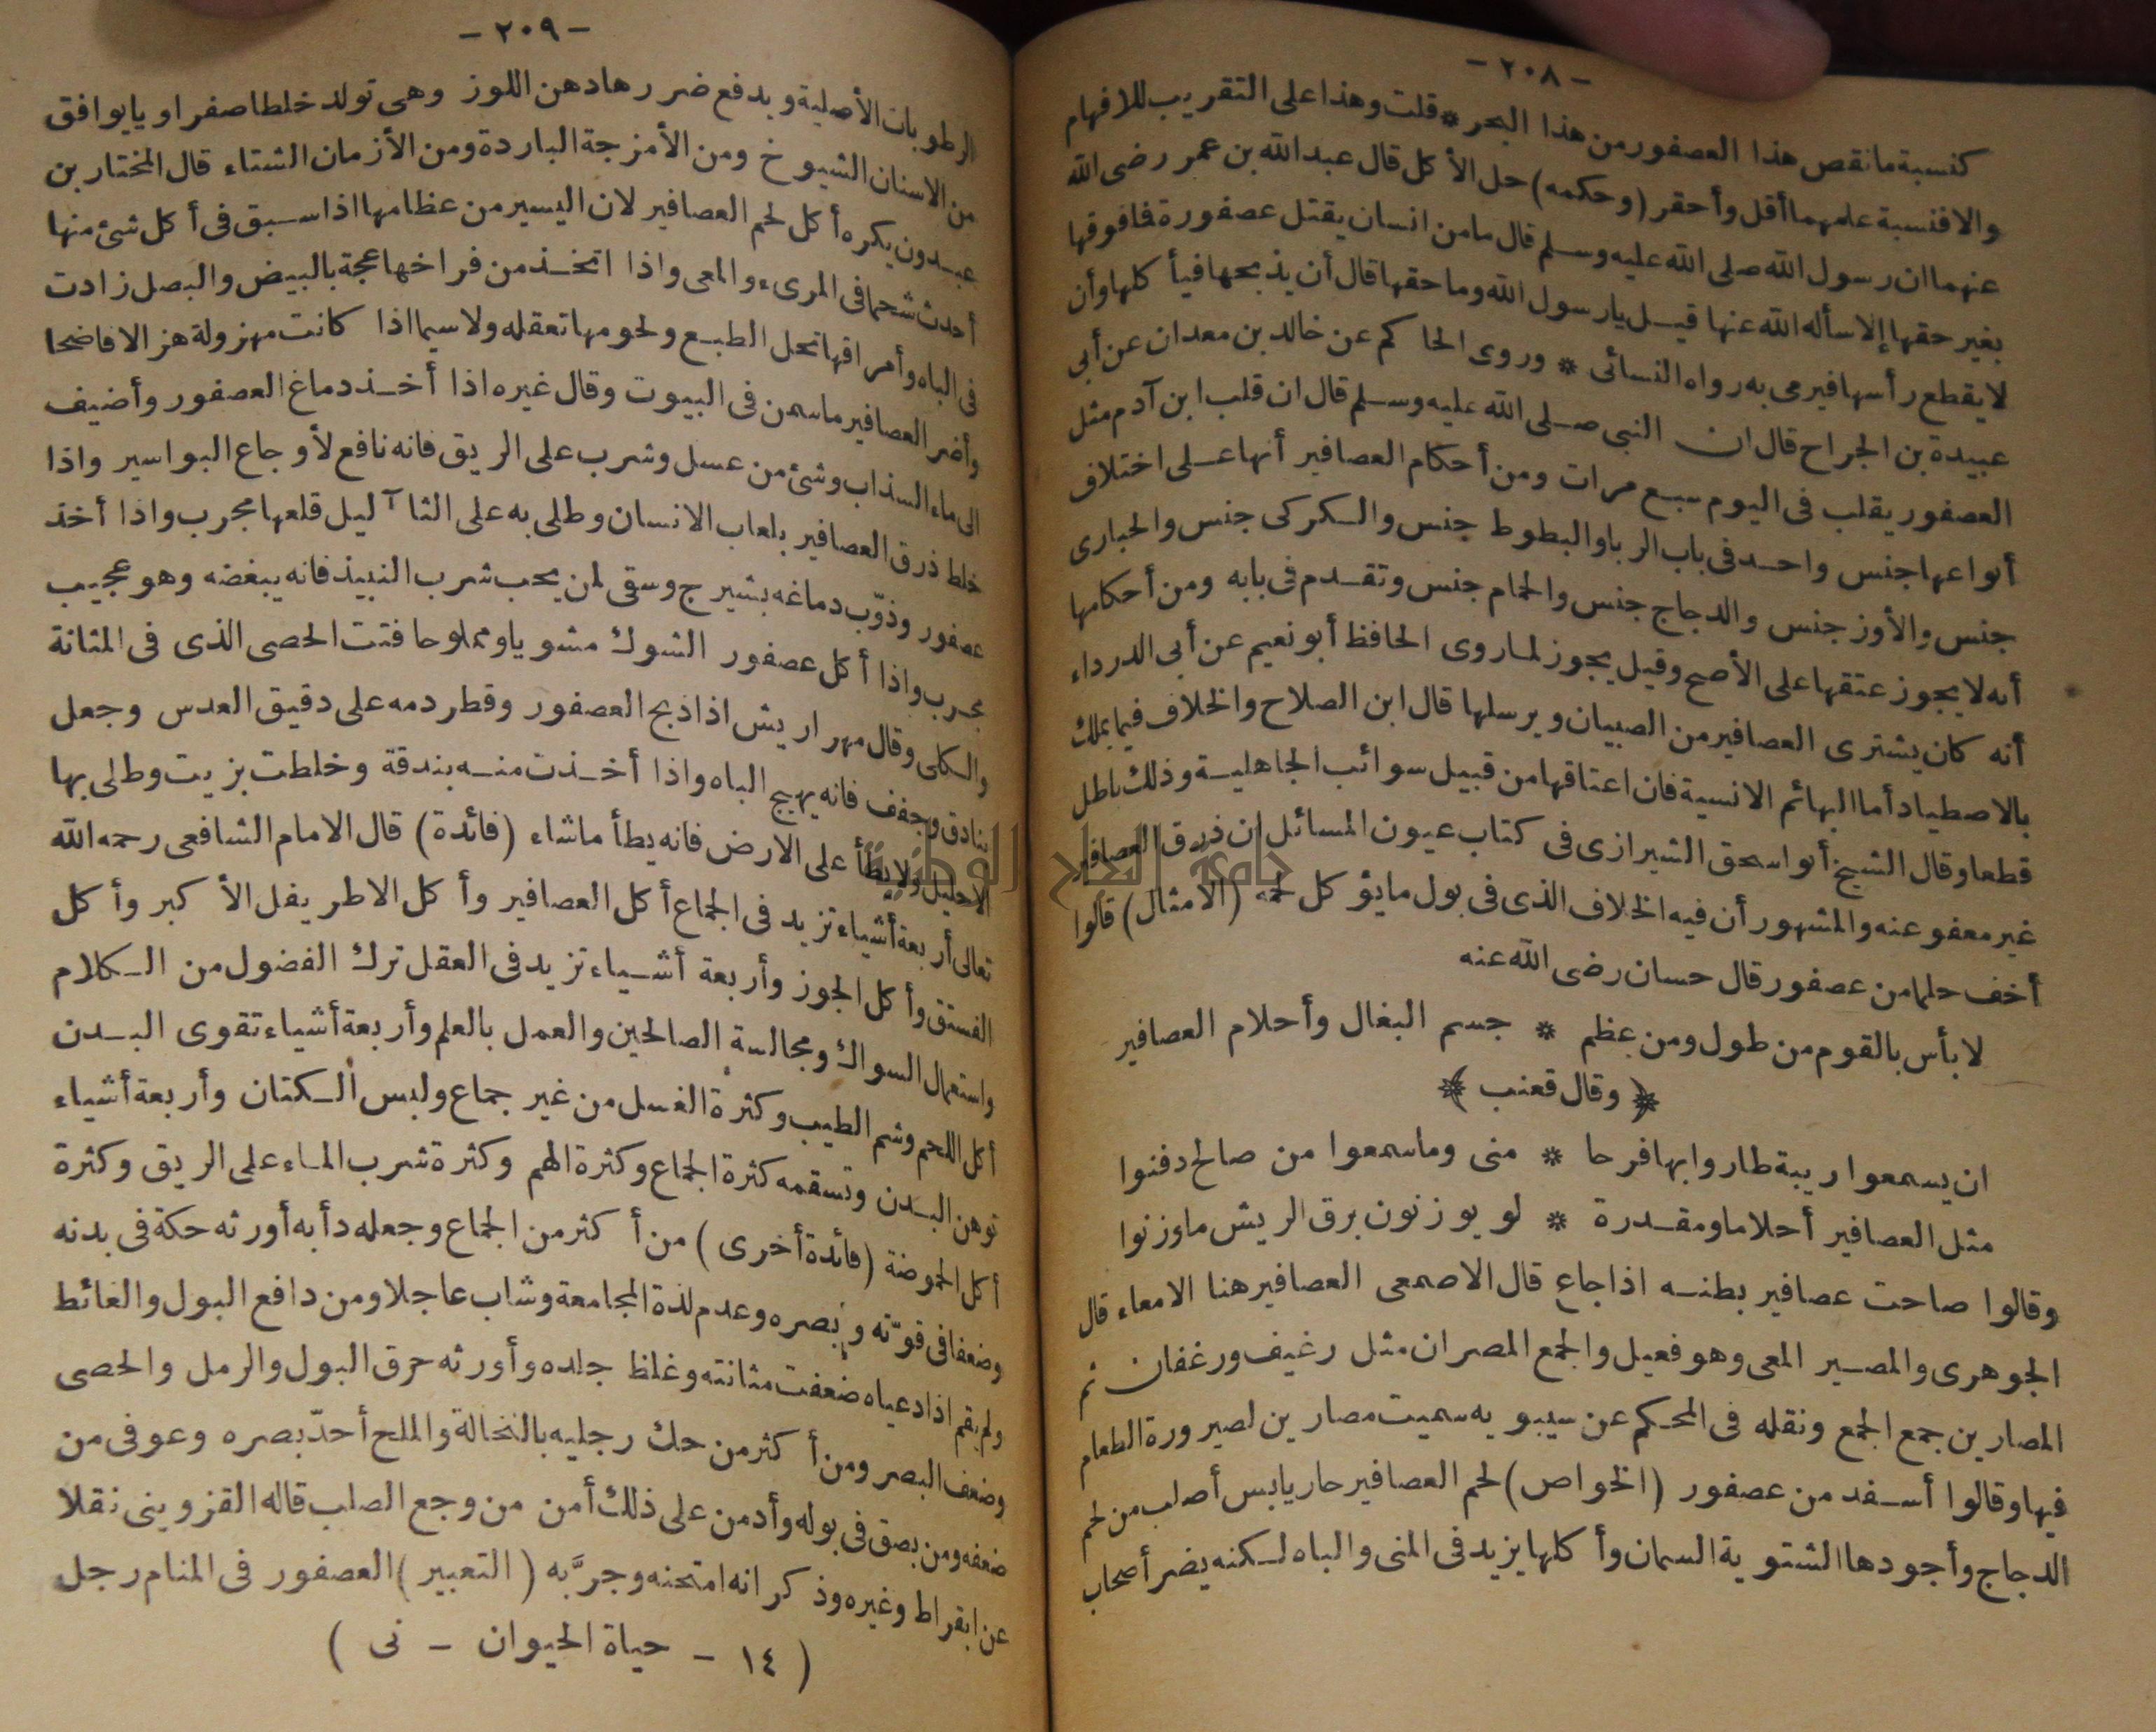 - ٢٠٨ -
كنسبة ما نقص هذا العصفور من هذا البحر * قلت وهذا على التقريب للافهام
والا فنسبة علمهما أقل وأحقر (وحكمه) حل الأكل قال عبد الله بن عمر رضى الله
عنهما ان رسول الله صلى الله عليه وسلم قال ما من انسان يقتل عصفورة فما فوقها
بغير حقها إلا سأله الله عنها قيل يا رسول الله وما حقها قال أن يذبحها فيأكلها وأن
لا يقطع رأسها فيرمى به رواه النسائى * وروى الحاكم عن خالد بن معدان عن أبى
عبيدة بن الجراح قال ان النبى صلى الله عليه وسلم قال ان قلب ابن آدم مثل
العصفور يقلب فى اليوم سبع مرات ومن أحكام العصافير أنها على اختلاف
أنواعها جنس واحد فى باب الربا والبطوط جنس والكركى جنس والحبارى
جنس والأوز جنس والدجاج جنس والحمام جنس وتقدم فى بابه ومن أحكامها
أنه لا يجوز عتقها على الأصح وقيل يجوز لما روى الحافظ أبو نعيم عن أبى الدرداء
أنه كان يشترى العصافير من الصبيان ويرسلها قال ابن الصلاح والخلاف فيما يملك
بالاصطياد أما البهائم الانسية فان اعتاقها من قبيل سوائب الجاهلية وذلك باطل
قطعا وقال الشيخ أبو اسحق الشيرازى فى كتاب عيون المسائل ان ذرق العصافير
غير معفو عنه والمشهور أن فيه الخلاف الذى فى بول ما يؤكل لحمه (الامثال) قالوا
أخف حلما من عصفور قال حسان رضى الله عنه
لا بأس بالقوم من طول ومن عظم * جسم البغال وأحلام العصافير
﴿ وقال قعنب ﴾
ان يسمعوا ريبة طاروا بها فرحا * منى وما سمعوا من صالح دفنوا
مثل العصافير أحلاما ومقدرة * لو يوزنون برق الريش ما وزنوا
وقالوا صاحت عصافير بطنه اذا جاع قال الاصمعى العصافير هنا الامعاء قال
الجوهرى والمصير المعى وهو فعيل والجمع المصران مثل رغيف ورغفان ثم
المصارين جمع الجمع ونقله فى المحكم عن سيبويه سميت مصارين لصيرورة الطعام
فيها وقالوا أسفد من عصفور (الخواص) لحم العصافير حار يابس أصلب من لحم
الدجاج وأجودها الشتوية السمان وأكلها يزيد فى المنى والباه لكنه يضر أصحاب
- ٢٠٩ -
الرطوبات الأصلية ويدفع ضررها دهن اللوز وهى تولد خلطا صفراويا يوافق
من الاسنان الشيوخ ومن الأمزجة الباردة ومن الأزمان الشتاء قال المختار بن
عبدون يكره أكل لحم العصافير لان اليسير من عظامها اذا سبق فى أكل شئ منها
أحدث شحما فى المرىء والمعى واذا اتخذ من فراخها عجة بالبيض والبصل زادت
فى الباه وأمراقها تحل الطبع ولحومها تعقله ولا سيما اذا كانت مهزولة هزالا فاضحا
وأضر العصافير ما سمن فى البيوت وقال غيره اذا أخذ دماغ العصفور وأضيف
الى ماء السذاب وشئ من عسل وشرب على الريق فانه نافع لأوجاع البواسير واذا
خلط ذرق العصافير بلعاب الانسان وطلى به على الثآليل قلعها مجرب واذا أخذ
عصفور وذوّب دماغه بشيرج وسقى لمن يحب شرب النبيذ فانه يبغضه وهو عجيب
مجرب واذا أكل عصفور الشوك مشويا ومملوحا فتت الحصى الذى فى المثانة
والكلى وقال مهراريش اذا ذبح العصفور وقطر دمه على دقيق العدس وجعل
بنادق وجفف فانه يهيج الباه واذا أخذت منه بندقة وخلطت بزيت وطلى بها
الاحليل ولا يطأ على الارض فانه يطأ ما شاء (فائدة) قال الامام الشافعى رحمه الله
تعالى أربعة أشياء تزيد فى الجماع أكل العصافير وأكل الاطريفل الأكبر وأكل
الفستق وأكل الجوز وأربعة أشياء تزيد فى العقل ترك الفضول من الكلام
واستعمال السواك ومجالسة الصالحين والعمل بالعلم وأربعة أشياء تقوى البدن
أكل اللحم وشم الطيب وكثرة الغسل من غير جماع ولبس الكتان وأربعة أشياء
توهن البدن وتسقمه كثرة الجماع وكثرة الهم وكثرة شرب الماء على الريق وكثرة
أكل الحموضة (فائدة أخرى) من أكثر من الجماع وجعله دأبه أورثه حكة فى بدنه
وضعفا فى قوّته وبصره وعدم لذة المجامعة وشاب عاجلا ومن دافع البول والغائط
ولم يقم اذا دعياه ضعفت مثانته وغلظ جلده وأورثه حرق البول والرمل والحصى
وضعف البصر ومن أكثر من حك رجليه بالنخالة والملح أحدّ بصره وعوفى من
ضعفه ومن بصق فى بوله وأدمن على ذلك أمن من وجع الصلب قاله القزوينى نقلا
عن ابقراط وغيره وذكر انه امتحنه وجرَّبه (التعبير) العصفور فى المنام رجل
(١٤ - حياة الحيوان - نى)
جامعة النجاح الوطنية